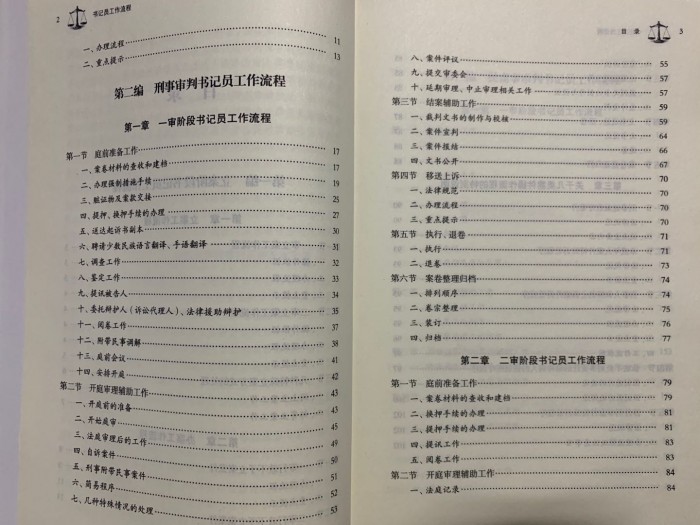 2 书记员工作流程
一、办理流程 11
二、重点提示 13
第二编 刑事审判书记员工作流程
第一章 一审阶段书记员工作流程
第一节 庭前准备工作 17
一、案卷材料的查收和建档 17
二、办理强制措施手续 20
三、赃证物及案款交接 25
四、提押、换押手续的办理 27
五、送达起诉书副本 30
六、聘请少数民族语言翻译、手语翻译 31
七、调查工作 32
八、鉴定工作 33
九、提讯被告人 34
十、委托辩护人(诉讼代理人)、法律援助辩护 35
十一、阅卷工作 37
十二、附带民事调解 38
十三、庭前会议 41
十四、安排开庭 42
第二节 开庭审理辅助工作 43
一、开庭前的准备 43
二、开始庭审 45
三、法庭审理后的工作 49
四、自诉案件 50
五、刑事附带民事案件 51
六、简易程序 52
七、几种特殊情况的处理 53
目录 3
八、案件评议 55
九、提交审委会 55
十、延期审理、中止审理相关工作 57
第三节 结案辅助工作 59
一、裁判文书的制作与校核 59
二、案件宣判 64
三、案件报结 66
四、文书公开 69
第四节 移送上诉 70
一、法律规范 70
二、办理流程 70
三、重点提示 70
第五节 执行、退卷 71
一、执行 71
二、退卷 73
第六节 案卷整理归档 74
一、排列顺序 74
二、卷宗整理 76
三、装订 76
四、归档 77
第二章 二审阶段书记员工作流程
第一节 庭前准备工作 79
一、案卷材料的查收和建档 79
二、换押手续的办理 81
三、提押手续的办理 81
四、提讯工作 83
五、阅卷工作 83
第二节 开庭审理辅助工作 84
一、法庭记录 84